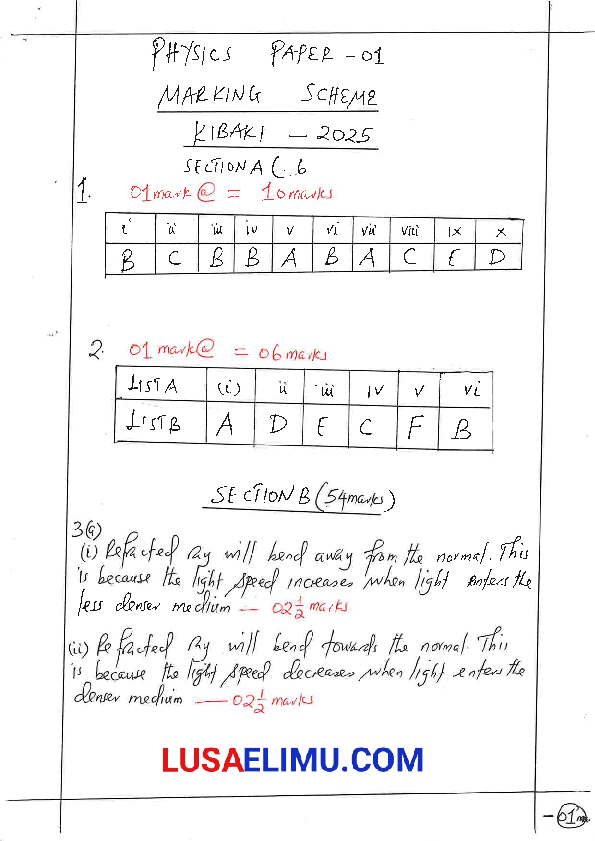 PHYSICS PAPER - 01
MARKING SCHEME
KIBAKI - 2025
SECTION A
1. 01 mark@ = 10 marks
i ii iii iv v vi vii viii ix x
B C B B A B A C E D
2. 01 mark@ = 06 marks
LIST A (i) ii iii iv v vi
LIST B A D E C F B
SECTION B (54 marks)
3(a)
(i) Refracted ray will bend away from the normal. This
is because the light speed increases when light enters the
less denser medium — 02 1/2 marks
(ii) Refracted ray will bend towards the normal. This
is because the light speed decreases when light enters the
denser medium — 02 1/2 marks
LUSAELIMU.COM
- 01